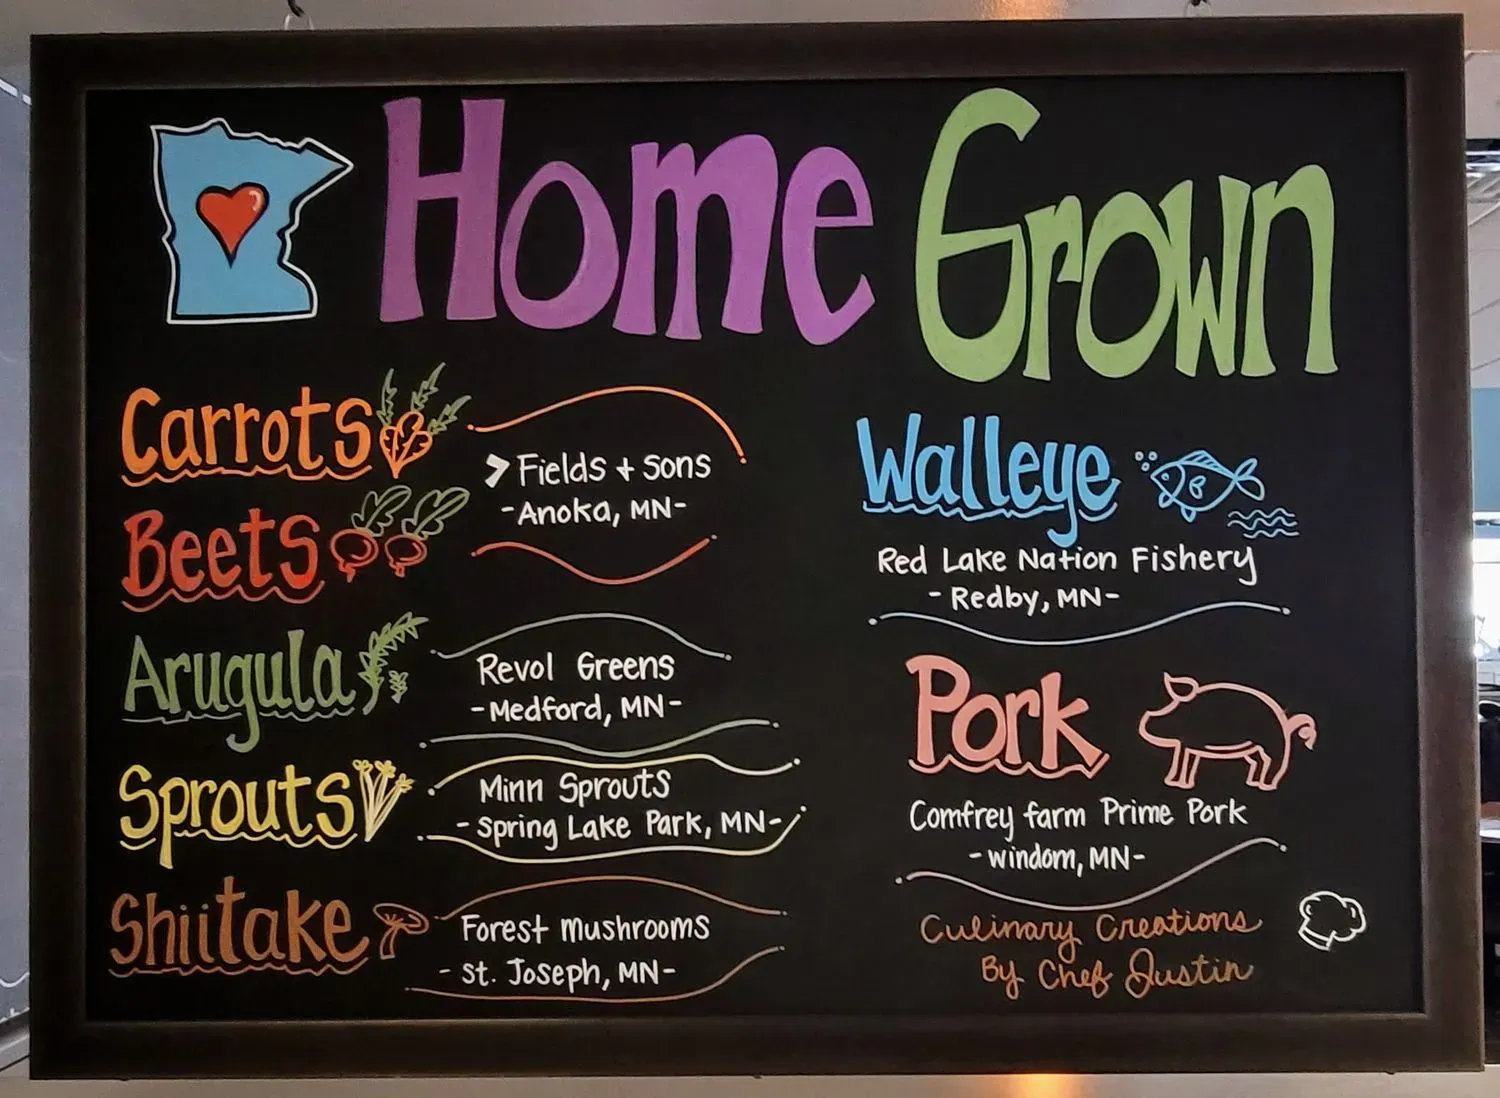 Home Grown
Carrots
Beets
Fields + Sons
-Anoka, MN-
Arugula
Revol Greens
-Medford, MN-
Sprouts
Minn Sprouts
-Spring Lake Park, MN-
Shiitake
Forest Mushrooms
- St. Joseph, MN-
Walleye
Red Lake Nation Fishery
- Redby, MN-
Pork
Comfrey farm Prime Pork
-windom, MN-
Culinary Creations
By Chef Justin